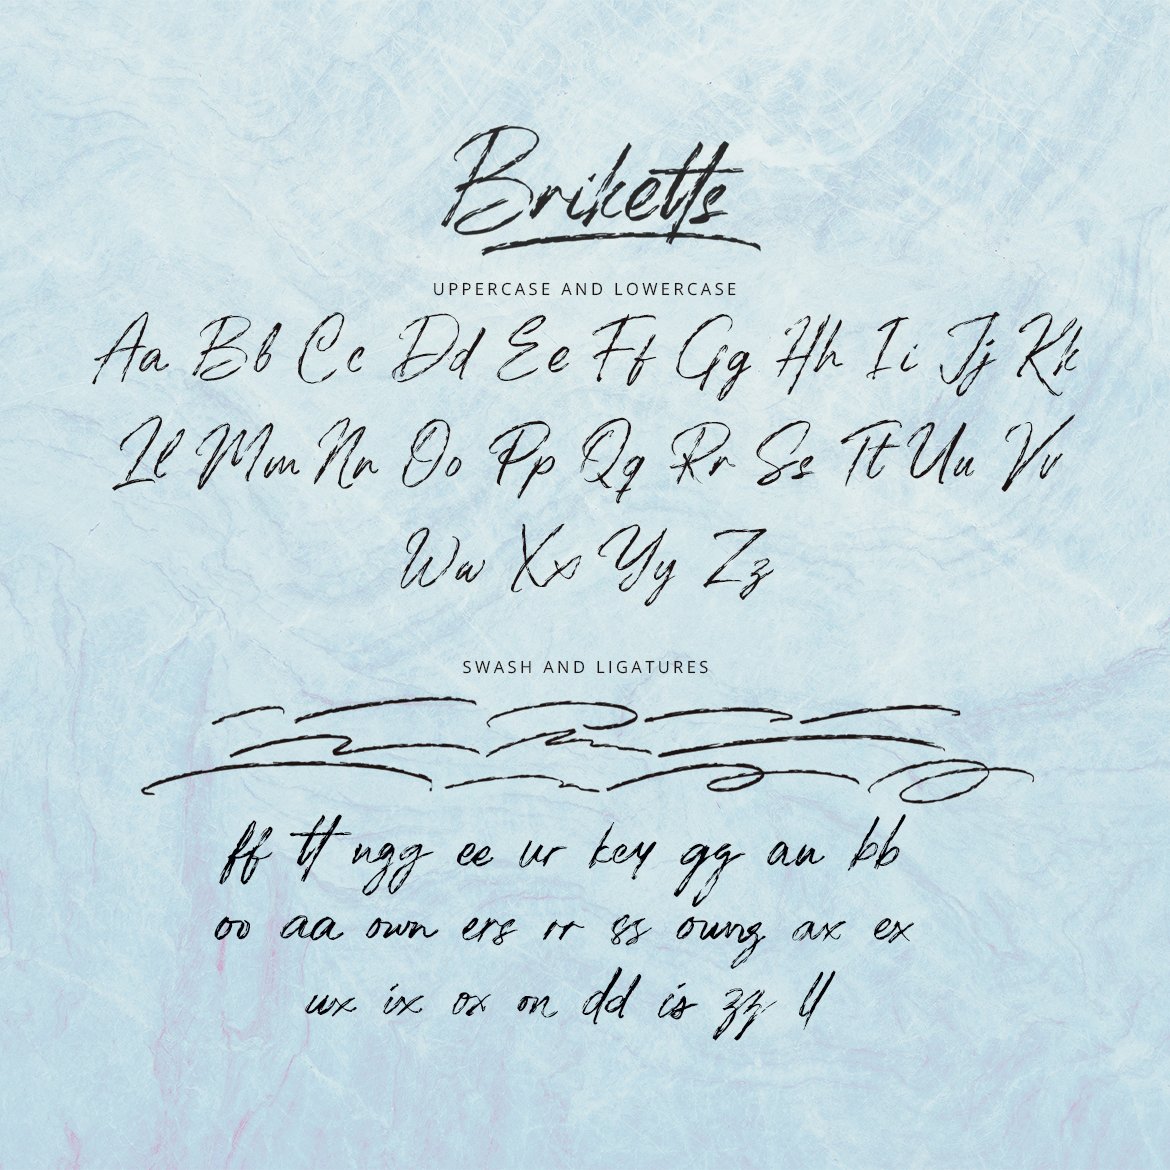 Briketts
UPPERCASE AND LOWERCASE
Aa Bb Cc Dd Ee Ff Gg Hh Ii Jj Kk
Ll Mm Nn Oo Pp Qq Rr Ss Tt Uu Vv
Ww Xx Yy Zz
SWASH AND LIGATURES
ff tt ngg ee ur key gg an bb
oo aa own ers rr ss oung ax ex
ux ix ox on dd is zz ll